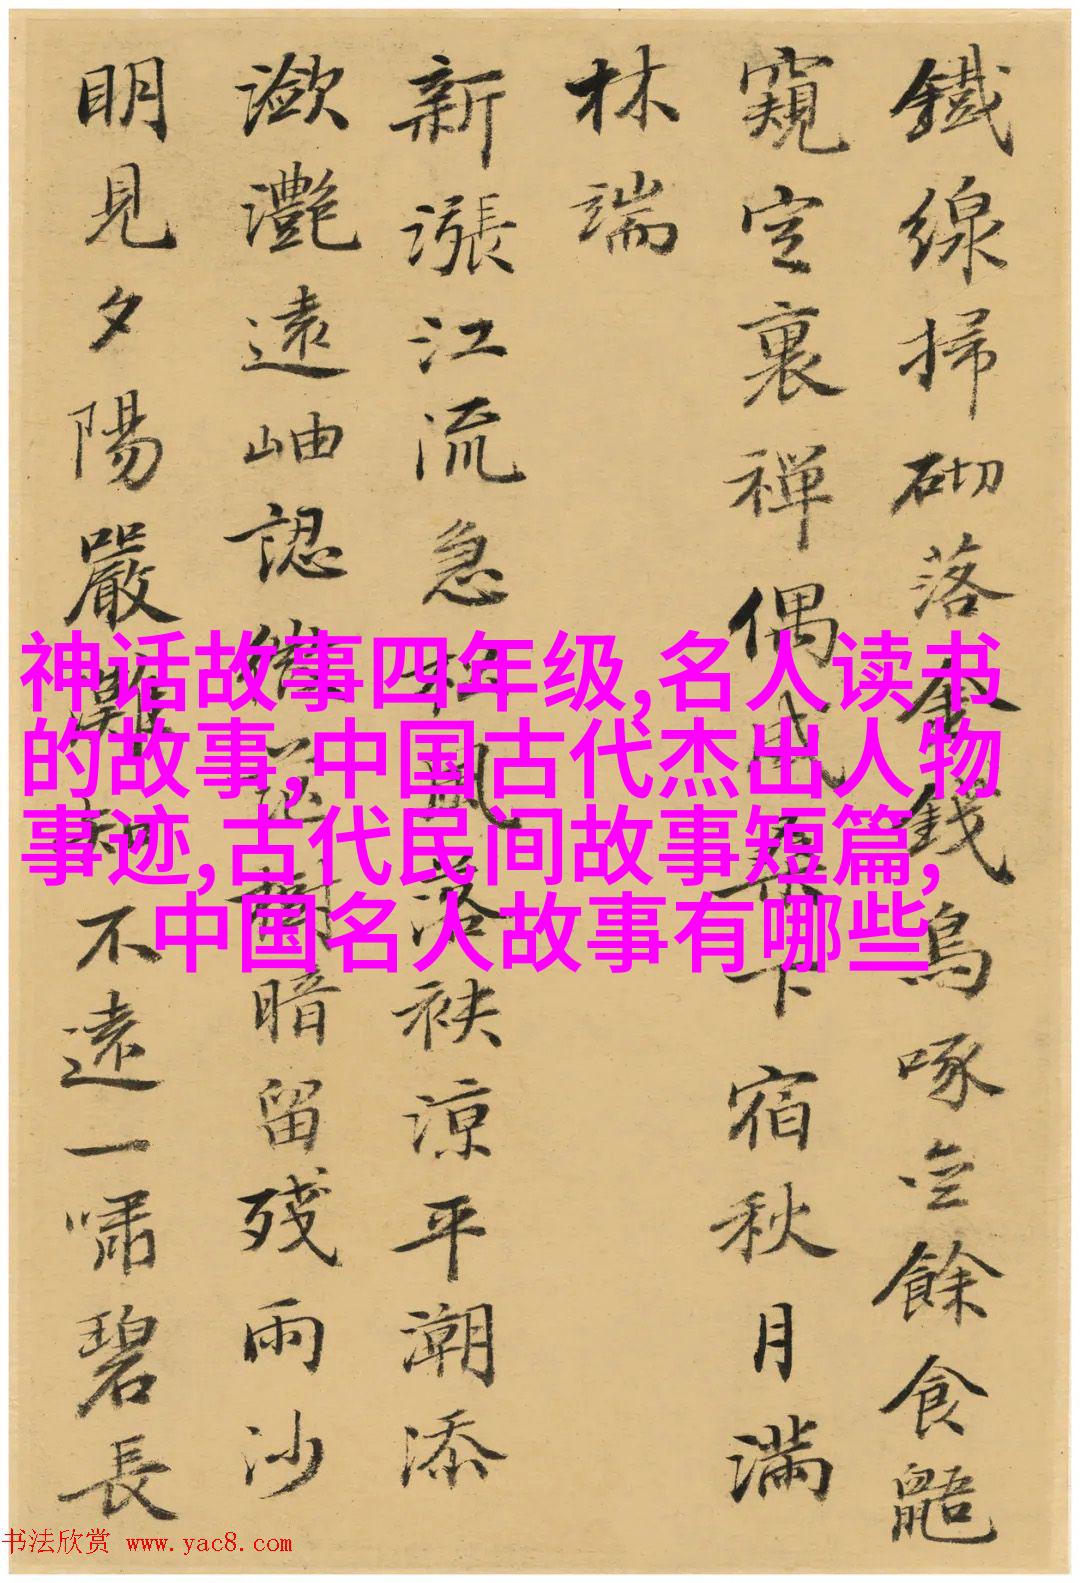 鐵線掃砌落金錢烏啄餘食鼯
窺定裏禪偶成桑下宿秋月滿
林端
新漲江流急松風落袂涼平潮添
瀲灧遠岫認樹暗留殘雨沙
明見夕陽嚴灘知不遠一嘯碧長
神话故事四年级,名人读书
的故事,中国古代杰出人物
事迹,古代民间故事短篇,
中国名人故事有哪些
书法欣赏 www.yac8.com